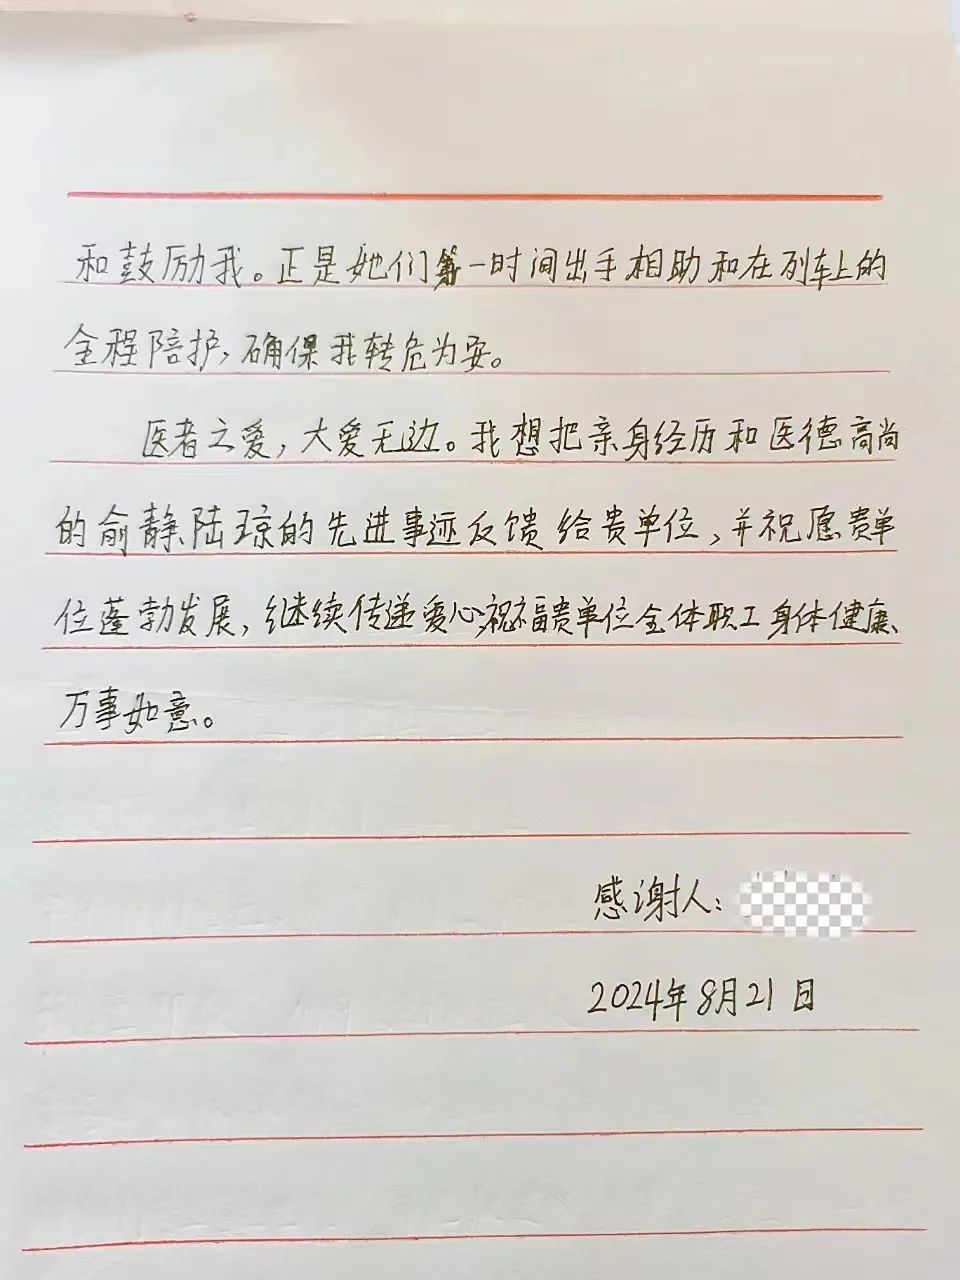 和鼓励我。正是她们第一时间出手相助和在列车上的
全程陪护,确保我转危为安。
医者之爱,大爱无边。我想把亲身经历和医德高尚
的俞静、陆琼的先进事迹反馈给贵单位,并祝愿贵单
位蓬勃发展,继续传递爱心,祝福贵单位全体职工身体健康、
万事如意。
感谢人:
2024年8月21日